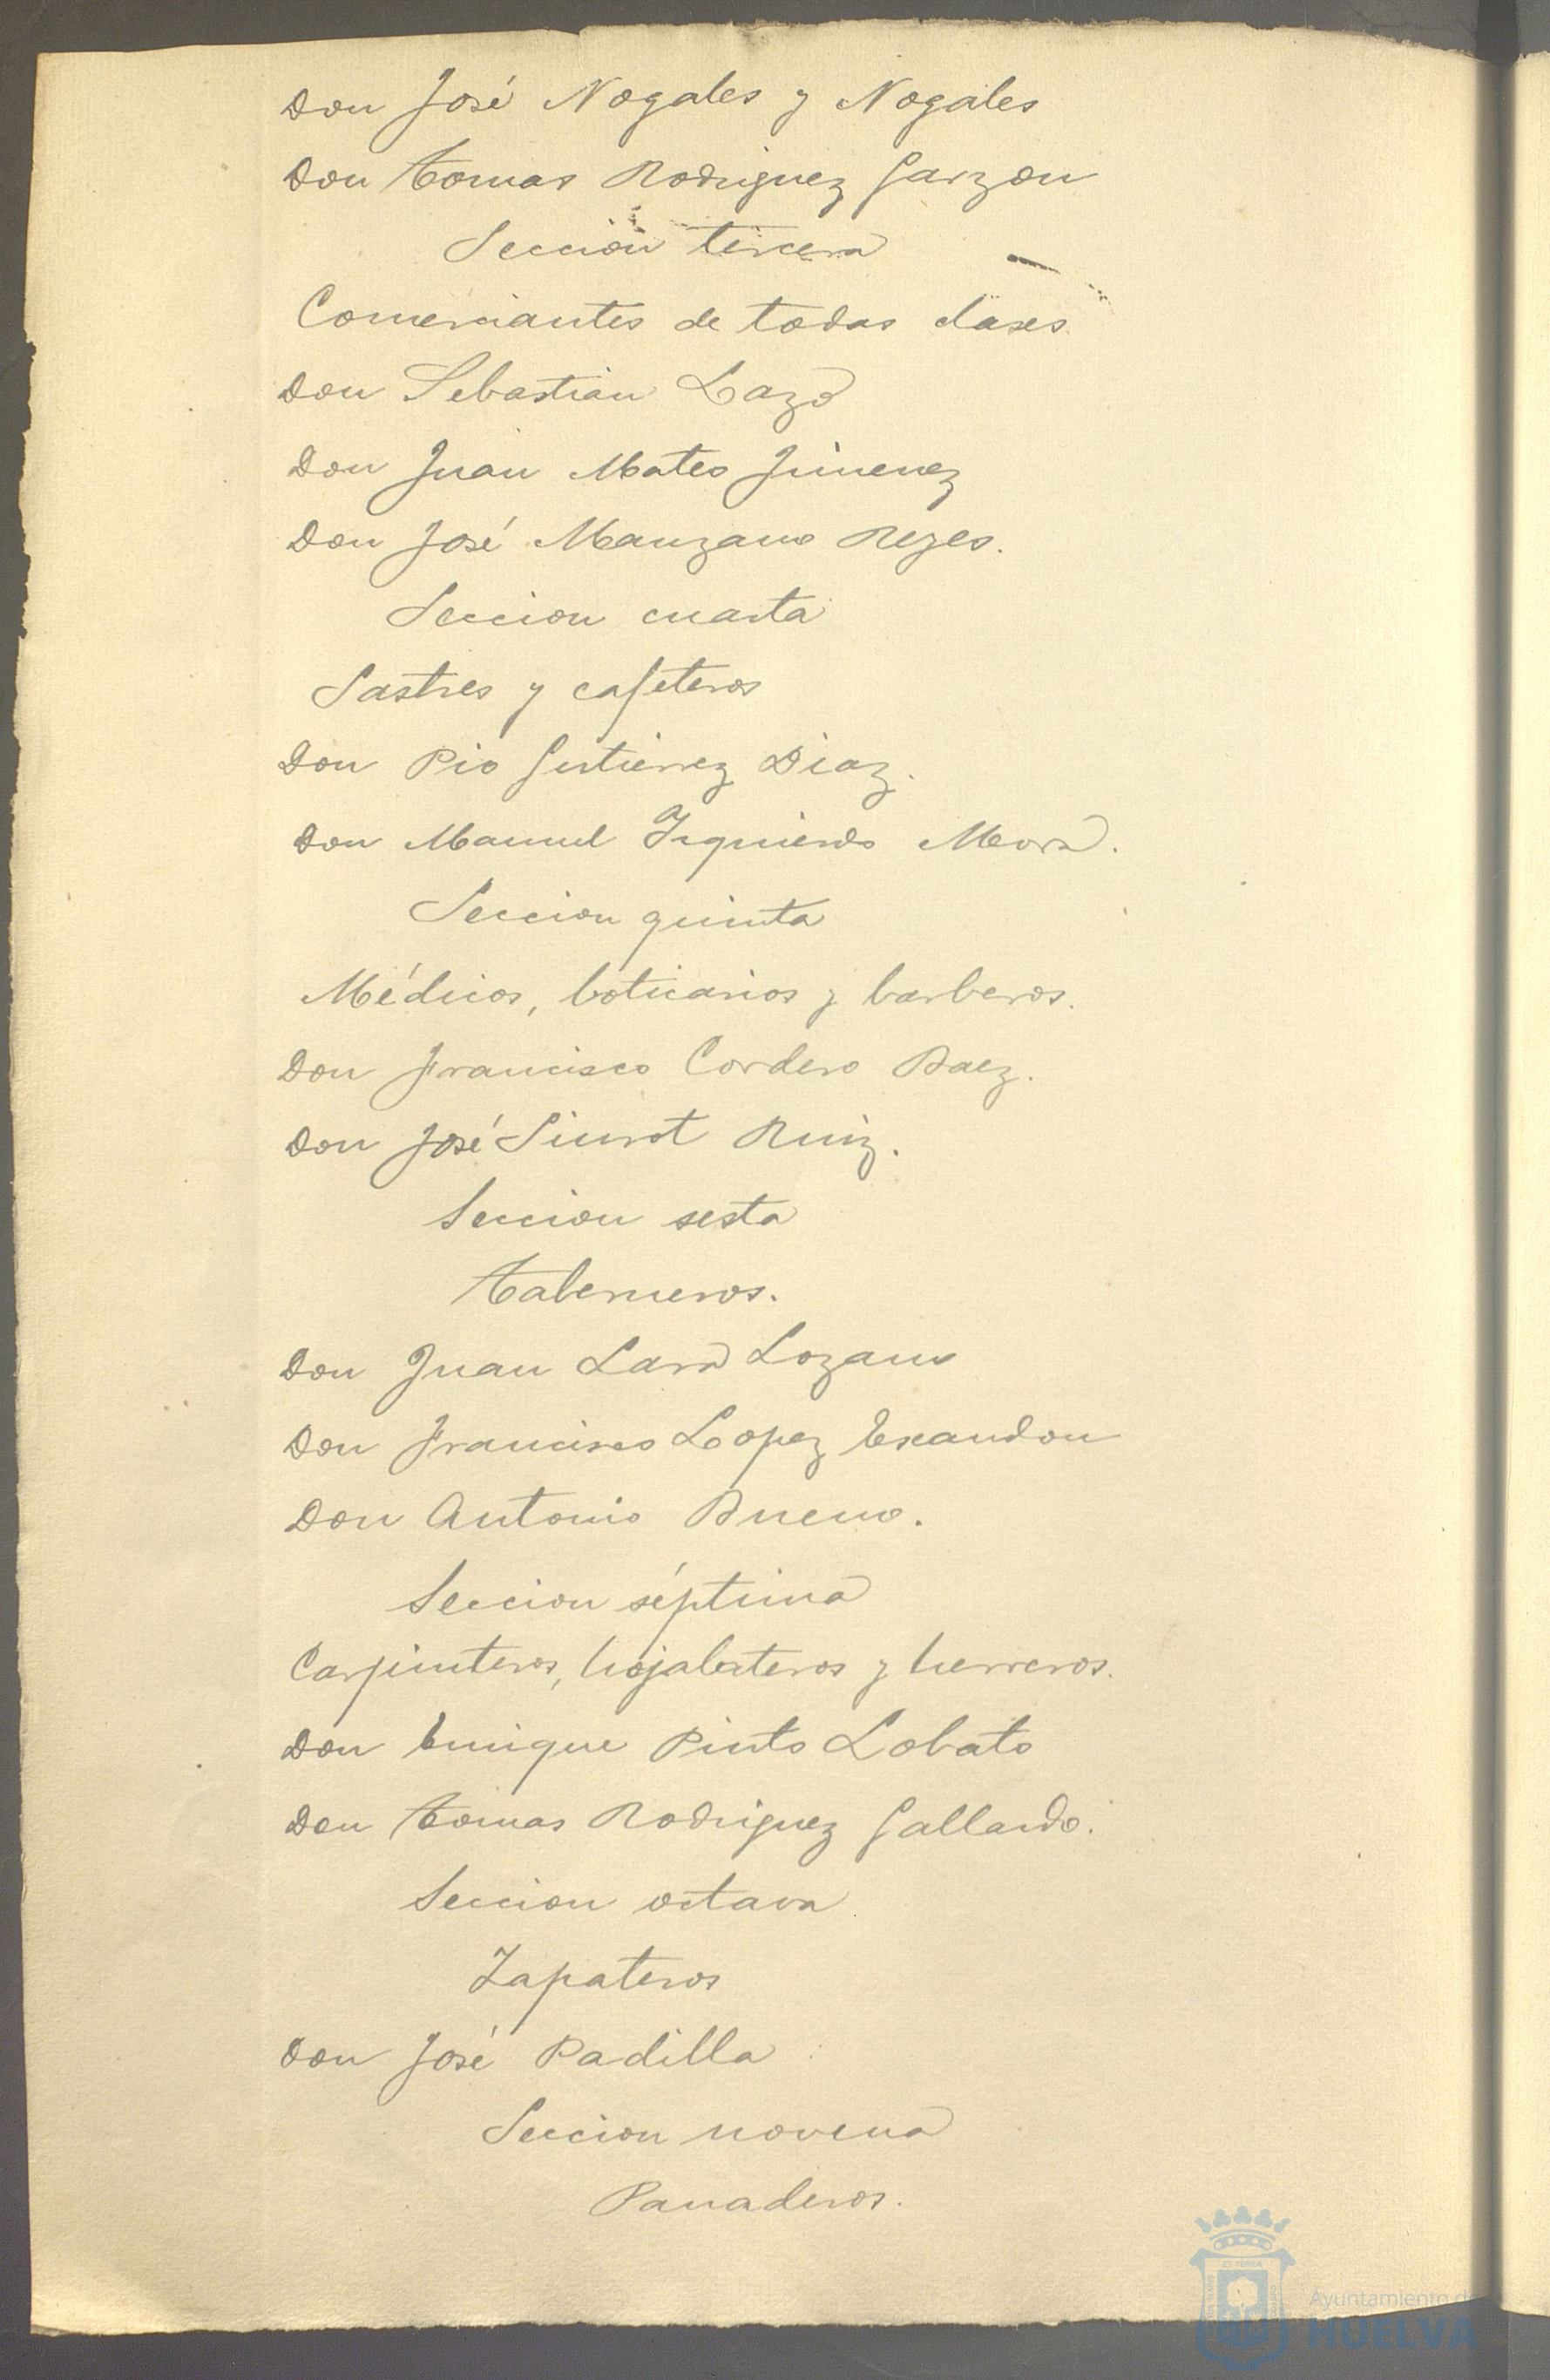 Don José Nogales y Nogales
Don Tomas Rodriguez Garzon
Seccion tercera
Comerciantes de todas clases.
Don Sebastian Lazo
Don Juan Mateo Jimenez
Don José Manzano Reyes.
Seccion cuarta
Sastres y cafeteros
Don Pio Gutierrez Diaz.
Don Manuel Izquierdo Mora.
Seccion quinta
Médicos, boticarios y barberos.
Don Francisco Cordero Baez.
Don José Siurot Ruiz.
Seccion sesta
Taberneros.
Don Juan Lara Lozano
Don Francisco Lopez Escandon
Don Antonio Bueno.
Seccion séptima
Carpinteros, hojalateros y herreros.
Don Enrique Pinto Lobato
Don Tomas Rodriguez Gallardo.
Seccion octava
Zapateros
Don José Padilla
Seccion novena
Panaderos.
Ayuntamiento de
HUELVA